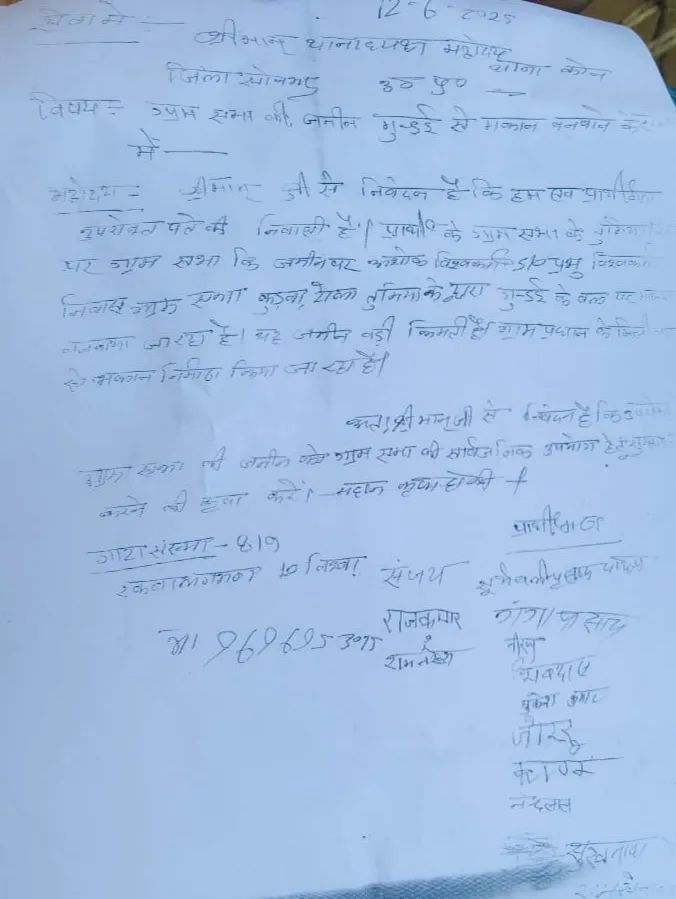 सेवा में :- 12-6-2025
श्रीमान् थानाध्यक्ष महोदय
थाना कोन
जिला सोनभद्र उ० प्र०
विषय :- ग्राम सभा की जमीन गुन्डई से मकान बनवाने के
में —
महोदय :- श्रीमान् जी से निवेदन है कि हम सब प्रार्थीगण
उपरोक्त पते के निवासी है। प्रार्थी के ग्राम सभा के
पर ग्राम सभा कि जमीन पर अशोक विश्वकर्मा S/o प्रभु विश्वकर्मा
निवास ग्राम सभा कुड़वा टोला के द्वारा गुन्डई के बल पर मकान
बनवाया जा रहा है। यह जमीन बड़ी किमती है। ग्राम प्रधान के
से मकान निर्माण किया जा रहा है।
अतः श्रीमान् जी से निवेदन है कि उपरोक्त
ग्राम सभा की जमीन को ग्राम सभा की सार्वजनिक उपयोग हेतु
करने की कृपा करें। महान कृपा होगी
प्रार्थीगण
गाटा संख्या - 819
रकबा लगभग 10 विश्वा
संजय
राजकुमार गंगा प्रसाद
मो 9696953075
रामनरेश
शिवदास
मुकेश कुमार
जोखू
नन्दलाल